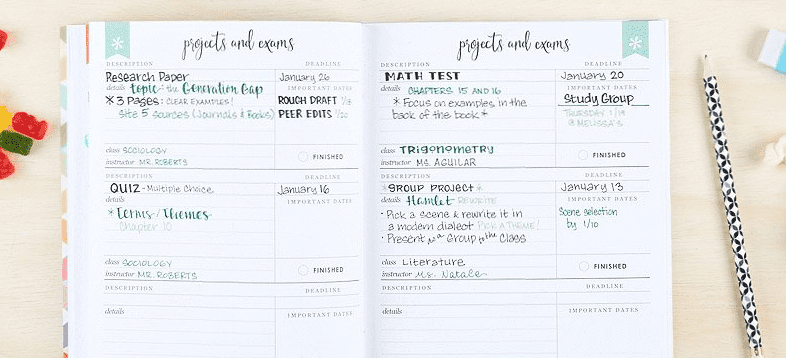 projects and exams
DESCRIPTION DEADLINE
Research Paper January 26
details topic - the Generation Gap IMPORTANT DATES
* 3 Pages: CLEAR EXAMPLES! ROUGH DRAFT 1/8
Site 5 sources (Journals & Books) PEER EDITS 1/20
class SOCIOLOGY
instructor MR. ROBERTS FINISHED
DESCRIPTION DEADLINE
QUIZ - Multiple Choice January 16
details IMPORTANT DATES
* Terms / Themes
Chapter 10
class SOCIOLOGY
instructor MR. ROBERTS FINISHED
DESCRIPTION DEADLINE
details IMPORTANT DATES
projects and exams
DESCRIPTION DEADLINE
MATH TEST January 20
details CHAPTERS 15 AND 16 IMPORTANT DATES
* Focus on examples in the Study Group
back of the book * THURSDAY 1/19
@ MELISSA'S
class TRIGONOMETRY
instructor MS. AGUILAR FINISHED
DESCRIPTION DEADLINE
*GROUP PROJECT* January 13
details Hamlet REWRITE IMPORTANT DATES
· Pick a scene & rewrite it in Scene selection
a modern dialect PICK A THEME! by 1/10
· Present as a Group to the Class
class Literature
instructor Ms. Natale FINISHED
DESCRIPTION DEADLINE
details IMPORTANT DATES